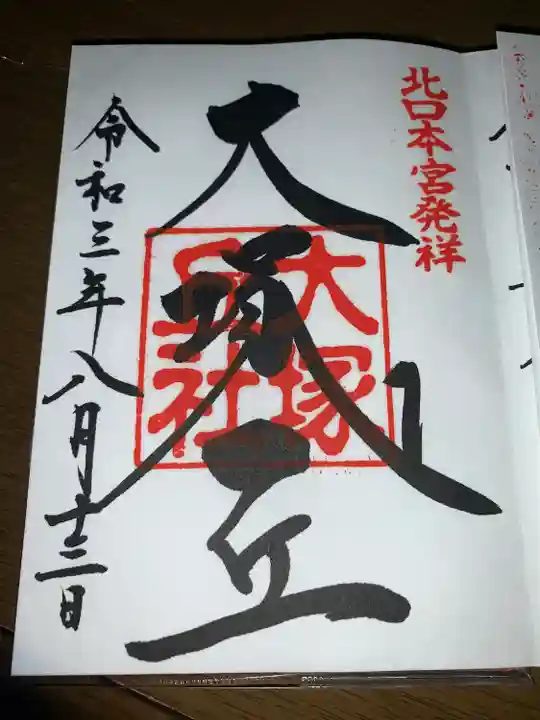 北口本宮発祥
大塚丘
大塚
丘社
令和三年八月十二日